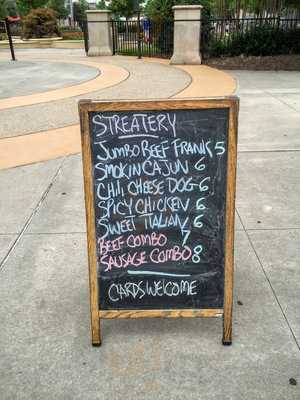 STREATERY
JUMBO BEEF FRANK 5
SMOKIN CAJUN 6
CHILI CHEESE DOG 6
SPICY CHICKEN 6
SWEET ITALIAN 6
BEEF COMBO 7
SAUSAGE COMBO 8
CARDS WELCOME